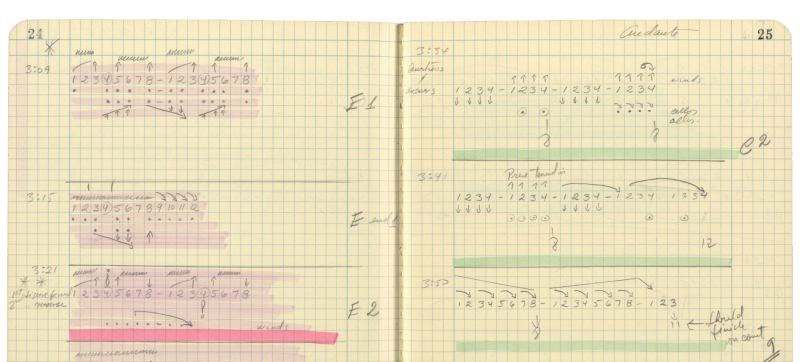 24
3:09
1 2 3 4 5 6 7 8 - 1 2 3 4 5 6 7 8
E1
3:15
1 2 3 4 5 6 7 8 9 10 11 12
E
3:21
1 2 3 4 5 6 7 8 - 1 2 3 4 5 6 7 8
reverse
E2
winds
25
Andante
3:34
winds
1 2 3 4 - 1 2 3 4 - 1 2 3 4 - 1 2 3 4
cellos
C2
3:41
1 2 3 4 - 1 2 3 4 - 1 2 3 4 - 1 2 3 4 1 2 3 4
12
3:50
1 2 3 4 5 6 7 8 - 1 2 3 4 5 6 7 8 - 1 2 3
11
should
finish
on count
9